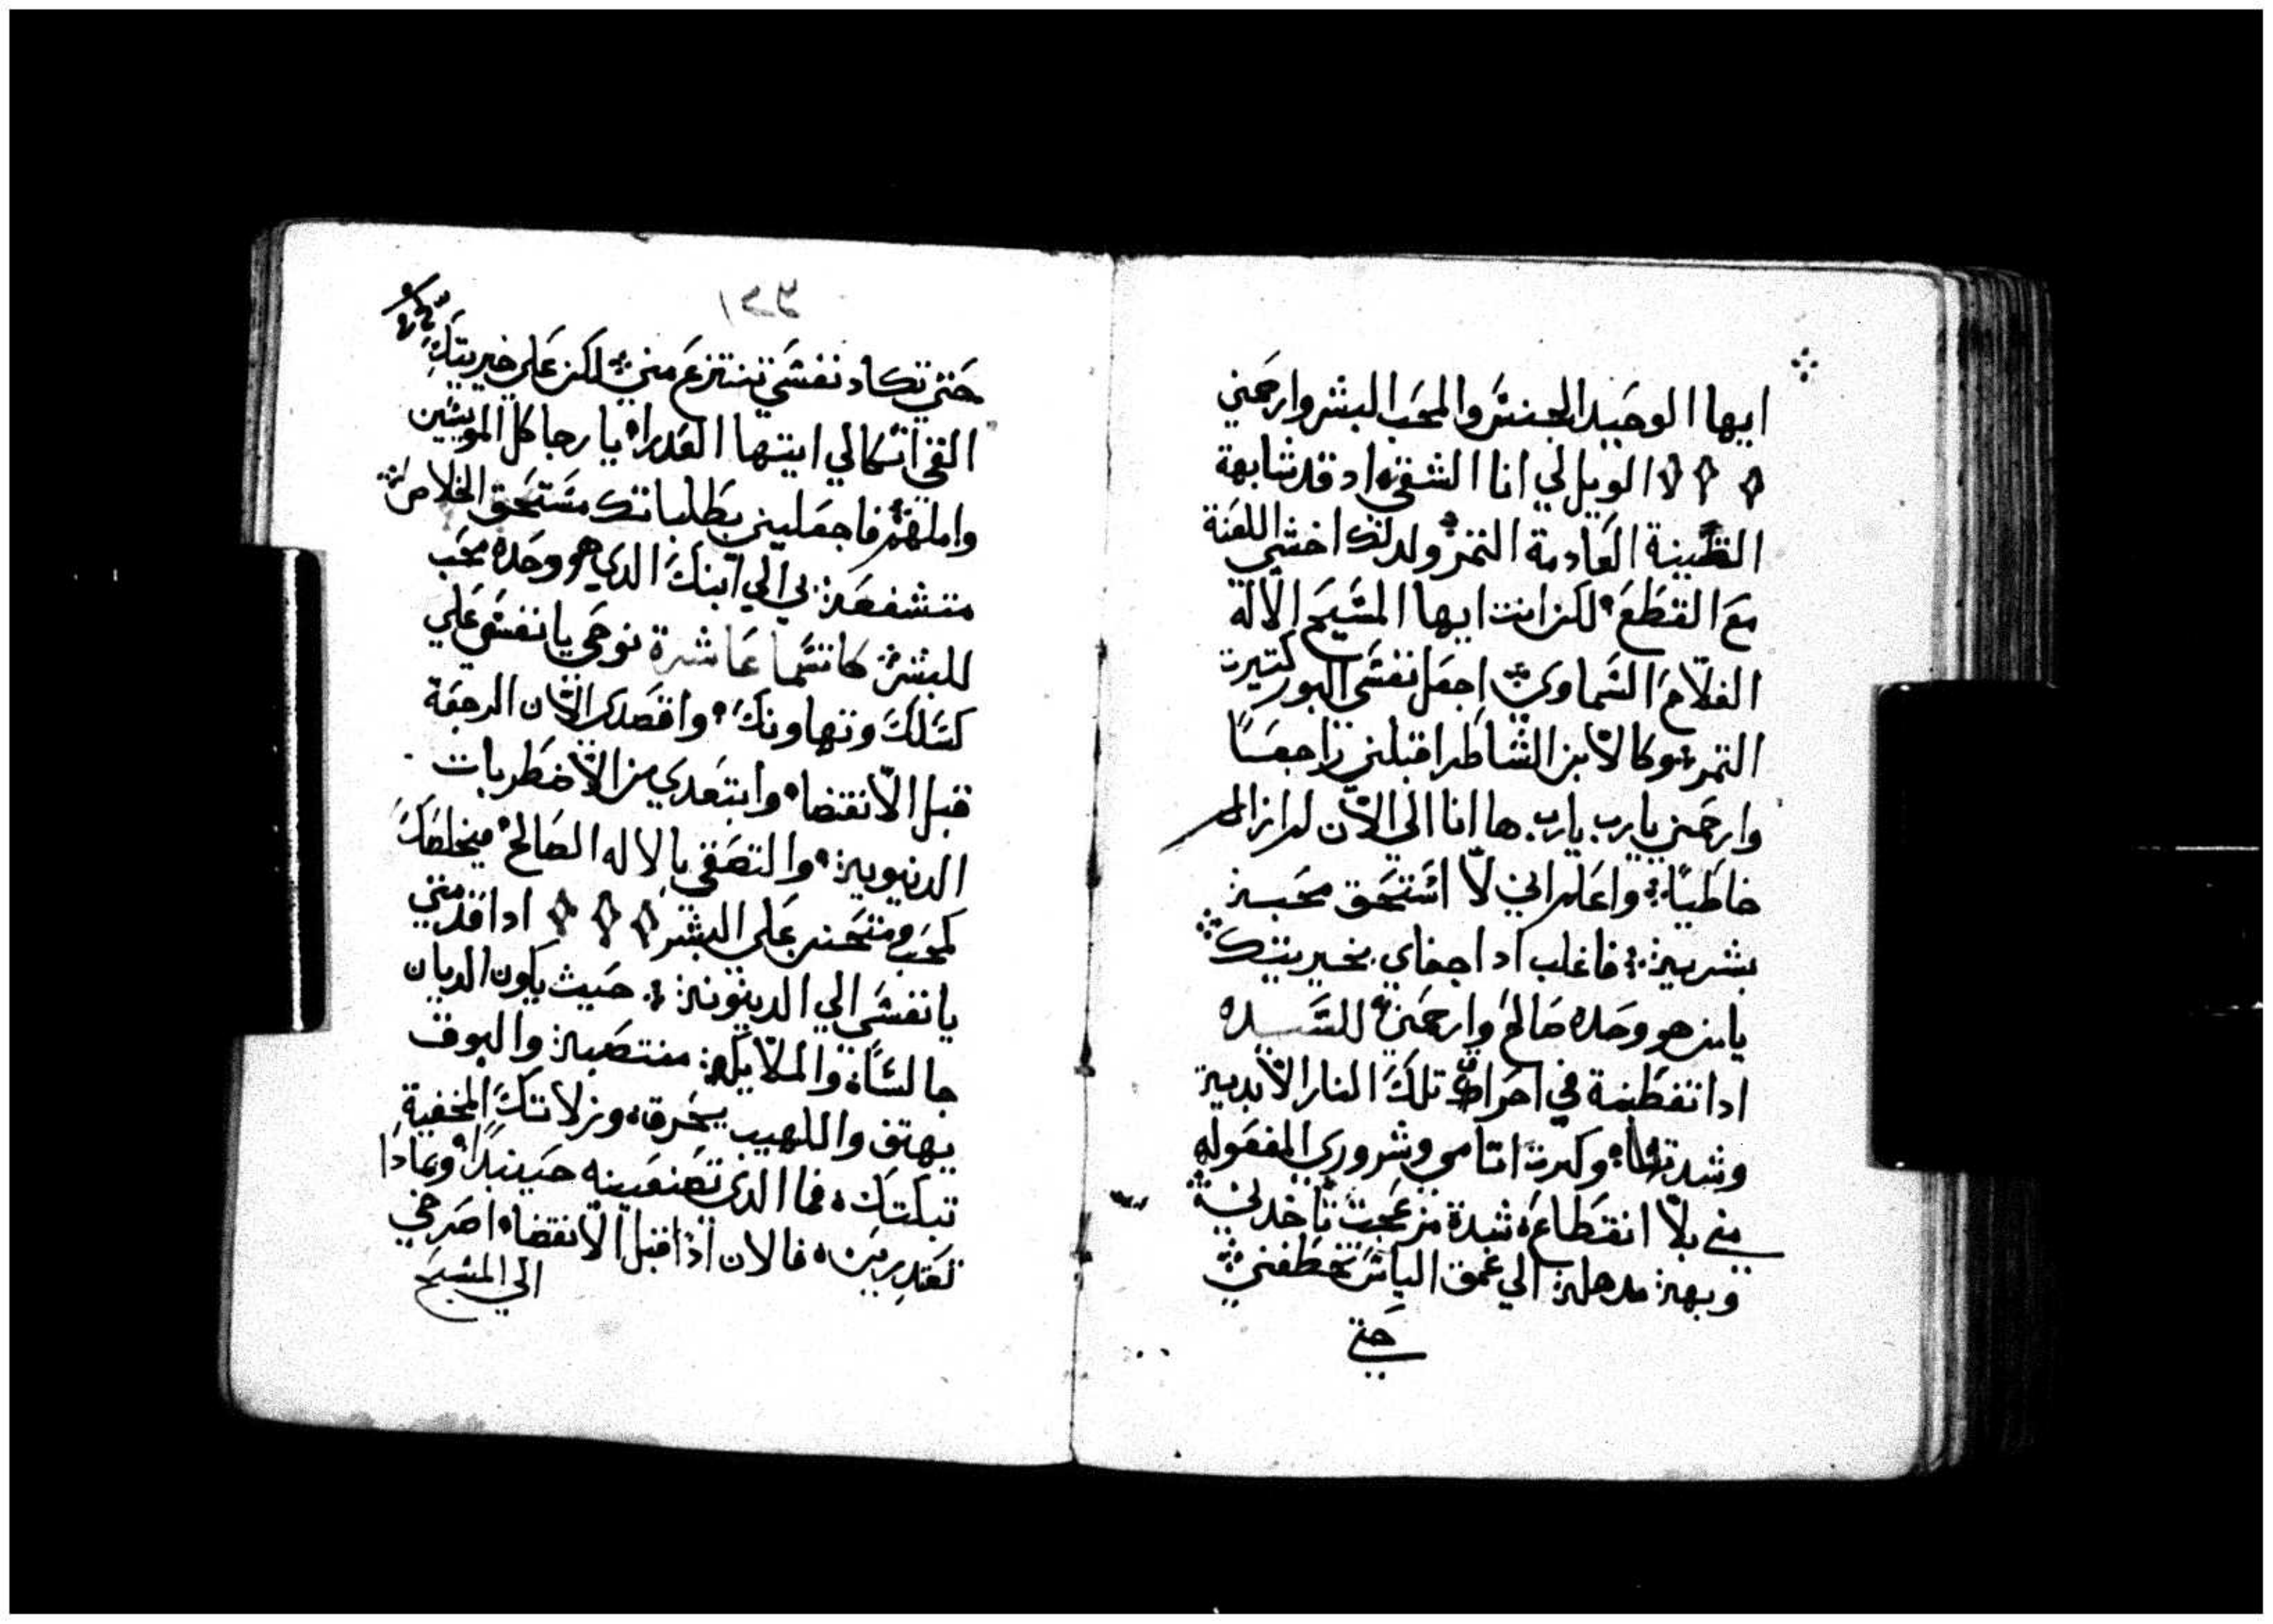 ايها الوحيد الجنس والمحب البشر وارحمني
الويل لي انا الشقي اد قد شابهة
التينة العادمة التمر ولدلك اخشي اللعنة
مع القطع لكن انت ايها المسيح الاله
الفلاح السماوي اجعل نفسي البور كتيرت
التمر وكالابن الشاطر اقبلني راجعًا
وارحمني يارب يارب ها انا الي الان لم ازال
خاطيًا واعلم اني لا استحق محبة
بشرية فاغلب ادا جفاي بخيريتك
يا من هو وحده صالح وارحمني للسيده
ادا تفطنة في احراق تلك النار الابدية
وشدتها وكترت اتامي وشروري المفعوله
مني بلا انقطاع شدة من عجب تاخدني
وبهة مدهلة الي عمق الياس تخطفني
حتي
حتي تكاد نفسي تنتزع مني لكن علي خيريتك
القي اتكالي ايتها العدراء يا رجا كل المويسين
واملهم فاجعليني بطلباتك مستحق الخلاص
متشفعة بي الي ابنك الدي هو وحده محب
للبشر كانسما عاشرة نوحي يا نفسي علي
كسلك وتهاونك واقصدي الان الرجعة
قبل الانقضا وابتعدي من الاضطربات
الدنيوية والتصقي بالاله الصالح فيخلصك
كمحب ومتحنن علي البشر ادا قدمتي
يا نفسي الي الدينونة حيث يكون الديان
جالسًا والملايكة منتصبة والبوق
يهتف واللهيب يحرق وزلاتك المخفية
تبكتك فما الدي تصنعينه حينيدا وعادا
تعتدرين فالان ادا قبل الانقضا اصرخي
الي المسيح